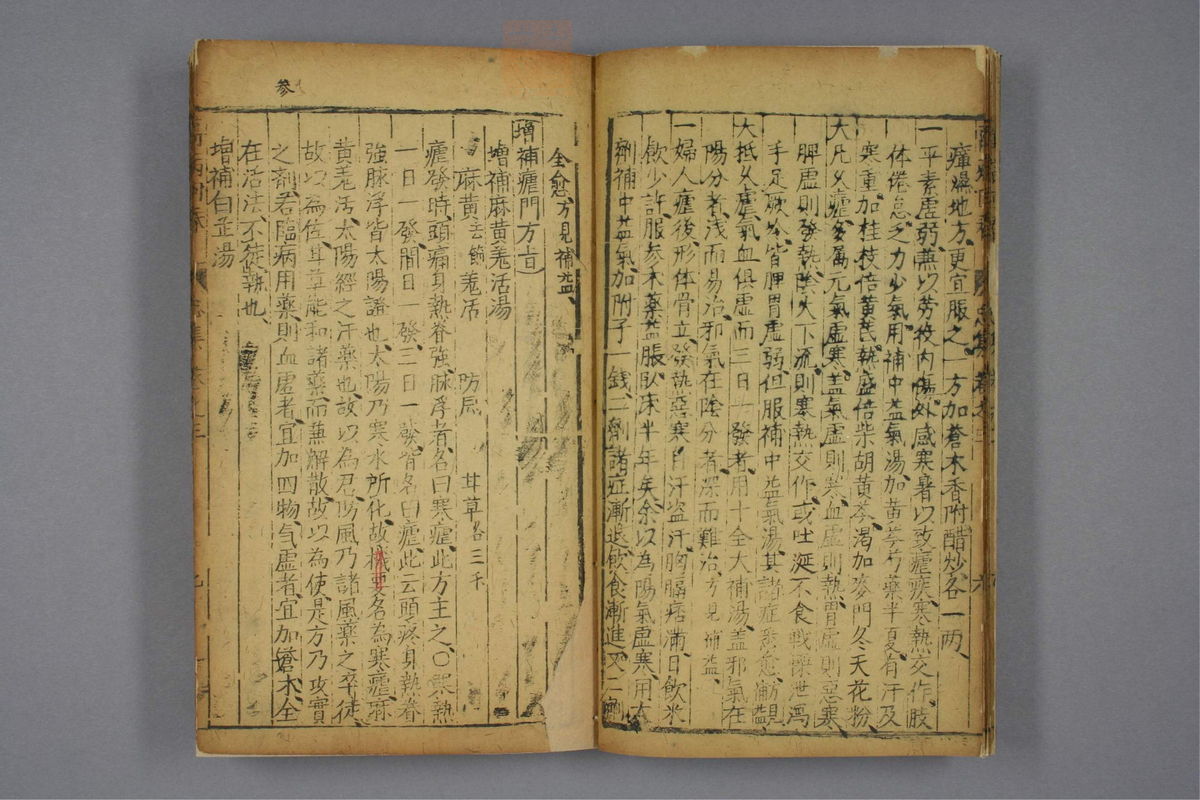 瘴濕地方更宜服之一方加蒼木香附醋炒各一两
一平素虛弱兼以劳役内傷外感寒暑以致瘧疾寒熱交作肢
体倦怠乏力少氣用補中益氣湯加黄芩芍藥半夏有汗及
寒重加桂枝倍黄芪熱盛倍柴胡黄芩渴加麥門冬天花粉
大凡久瘧多属元氣虛寒盖氣虛則寒血虛則熱胃虛則惡寒
脾虛則發熱陰火下流則寒熱交作或吐涎不食戰慄泄瀉
手足厥冷皆脾胃虛弱但服補中益氣湯其諸症悉愈方見補益
大抵久瘧氣血俱虛而三日一發者用十全大補湯盖邪氣在
陽分者浅而易治邪氣在陰分者深而難治方見補益
一婦人瘧後形体骨立發熱惡寒自汗盗汗胸膈痞滿日飲米
飲少許服参术藥益脹臥床半年矣余以為陽氣虛寒用大
劑補中益氣加附子一錢二劑諸症漸退飲食漸進又二劑
全愈方見補益
增補瘧門方旨
增補麻黄羗活湯
麻黄去節 羗活 防風 甘草各三千
瘧發時頭痛身熱脊強脉浮者名曰寒瘧此方主之〇寒熱
一日一發間日一發三日一發皆名曰瘧此云頭疼身熱脊
強脉浮皆太陽證也太陽乃寒水所化故機要名為寒瘧麻
黄羗活太陽經之汗藥也故以為君防風乃諸風藥之卒徒
故以為佐甘草能和諸藥而兼解散故以為使是方乃攻實
之剤君臨病用藥則血虛者宜加四物气虛者宜加蒼木全
在活法不徒執也
增補白芷湯
参